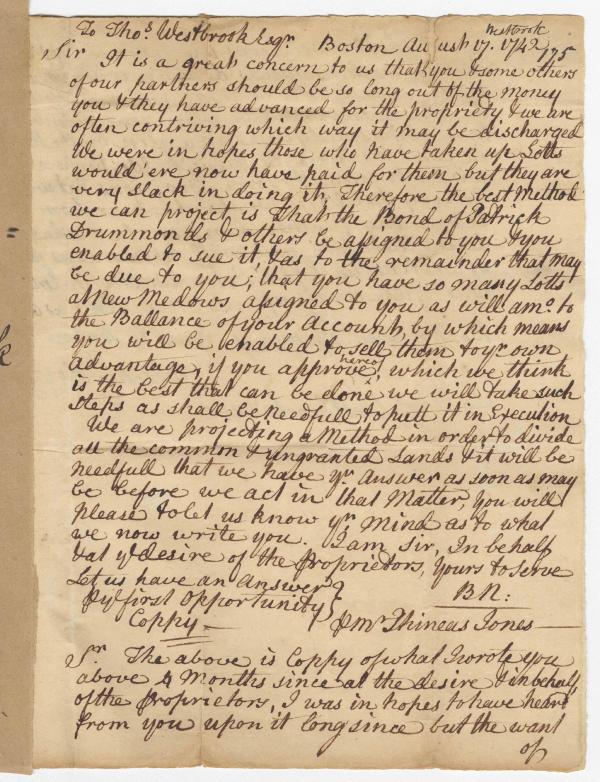 Westbrook
To Thos. Westbrook Esqr. Boston August 17. 1742
175
Sir It is a great concern to us that you & some others
of our partners should be so long out of the money
you & they have advanced for the propriety & we are
often contriving which way it may be discharged
We were in hopes those who have taken up Lotts
would ere now have paid for them but they are
very slack in doing it, Therefore the best Method
we can project is That the Bond of Patrick
Drummonds & others be assigned to you & you
enabled to sue it, & as to the remainder that may
be due to you; that you have so many Lotts
at New Medows assigned to you as will amo. to
the Ballance of your Account, by which means
you will be enabled to sell them to yr. own
Advantage, if you approve hereof, which we think
is the best that can be done we will take such
steps as shall be needfull to putt it in Execution
We are projecting a Method in order to divide
all the common & ungranted Lands & it will be
needfull that we have yr. Answer as soon as may
be before we act in that Matter, you will
please to let us know yr. mind as to what
we now write you. I am, Sir, In behalf
& at ye desire of the Proprietors, yours to serve
Let us have an Answer
ye first opportunity
BN:
Coppy
Mr. Phineas Jones
Sr. The above is Coppy of what I wrote you
above 4 Months since at the desire & in behalf
of the Proprietors, I was in hopes to have heard
from you upon it long since but the want
of